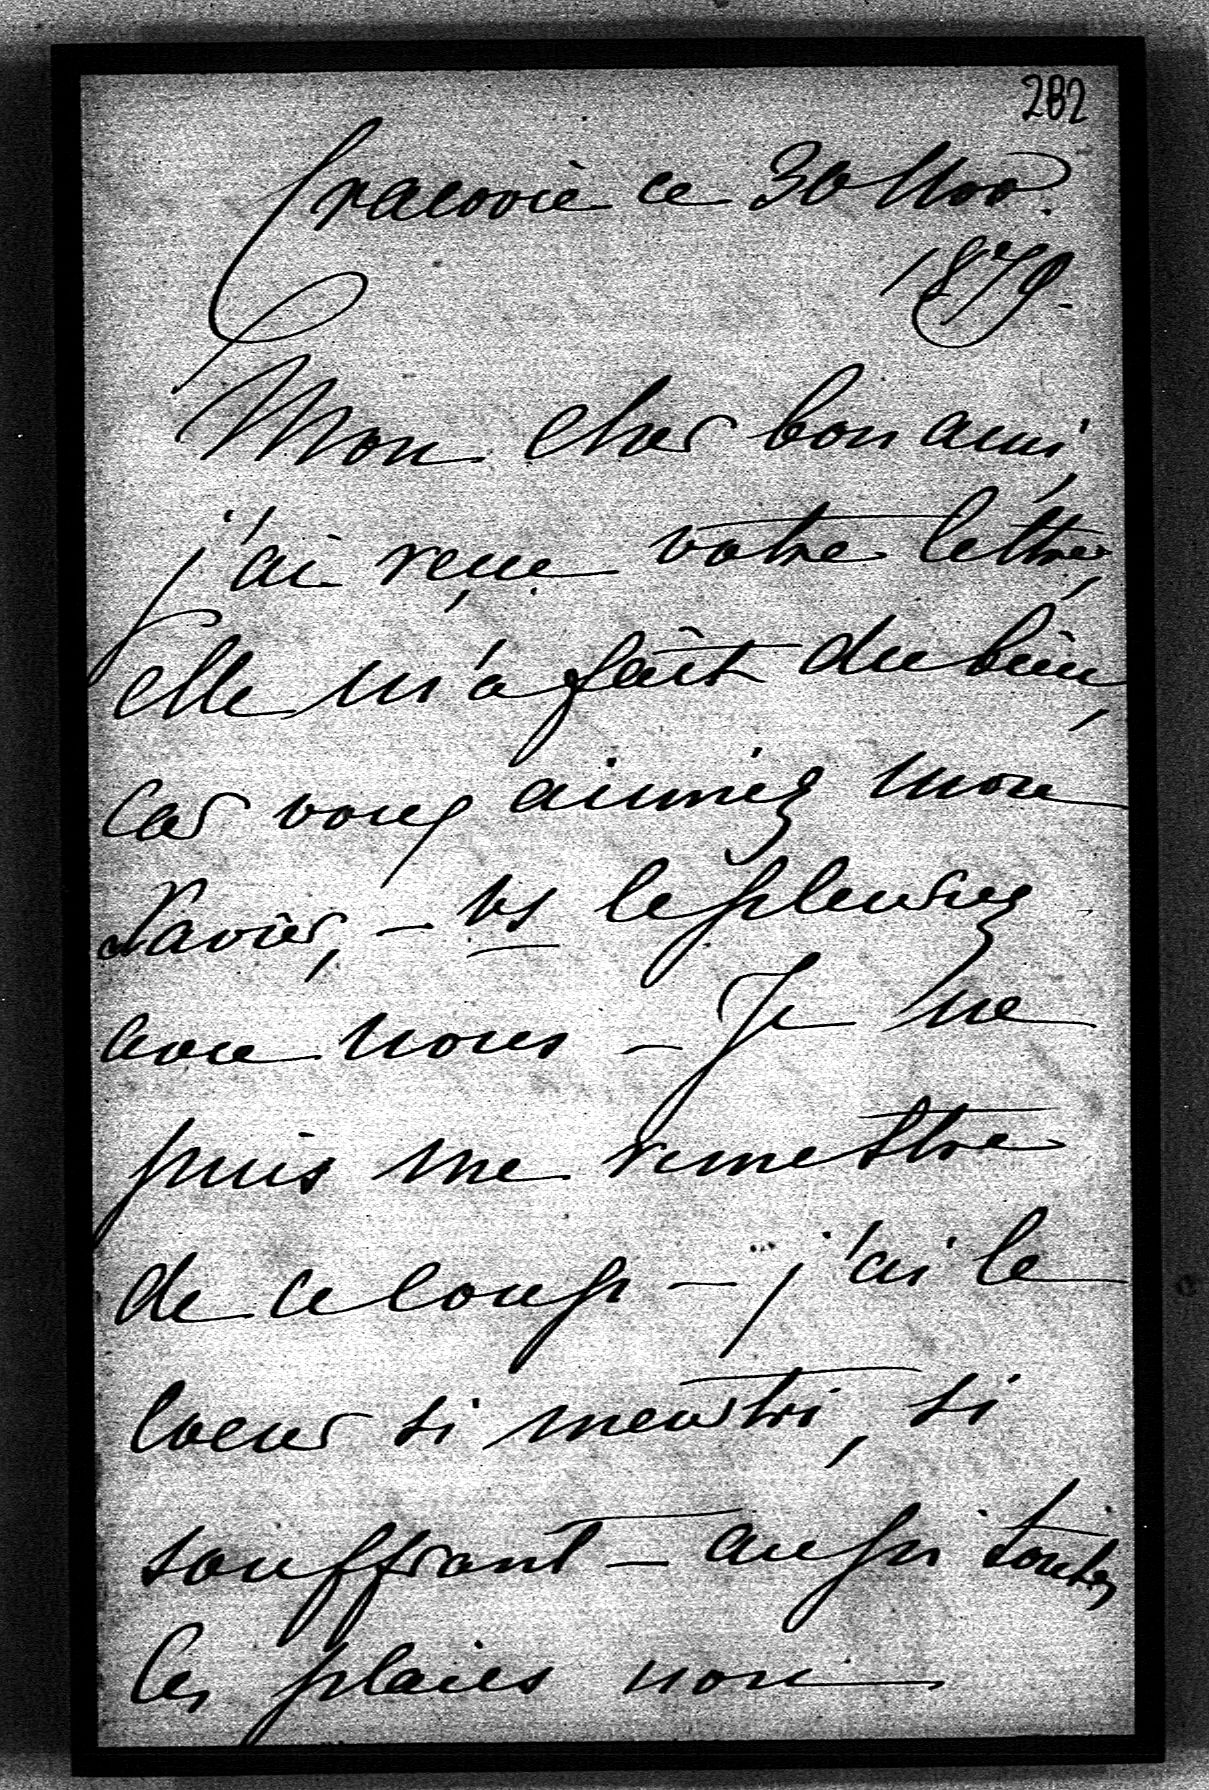 282
Cracovie ce 30 Nov.
1879.
Mon cher bon ami,
j'ai reçue votre lettre,
elle m'a fait du bien,
car vous aimiez mon
Xavier, – vs le pleurez
avec nous – Je ne
puis me remettre
de ce coup – j'ai le
coeur si meurtri, si
souffrant – aussi toutes
les plaies non